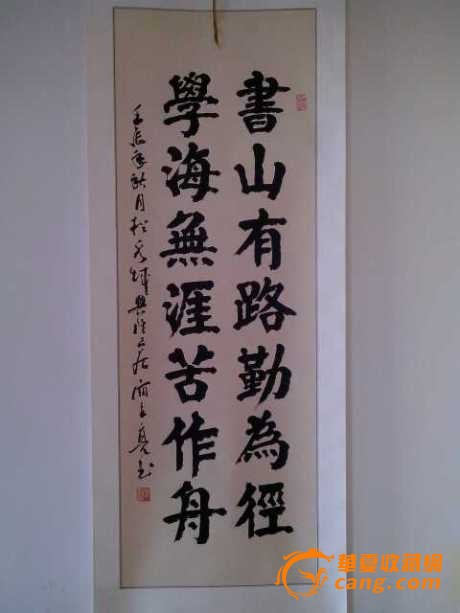 書山有路勤為徑
學海無涯苦作舟
壬辰年秋月於
書
華夏收藏網
cang.com